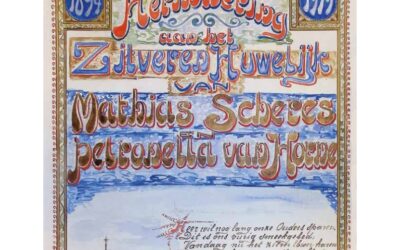 1894 1919
Herinnering
aan het
Zilveren Huwelijk
van
Mathias Scheres
petronella van Horne
Heer wil nog lang onze Ouders sparen
Dit is ons vurig smeekgebed
Vandaag nu het